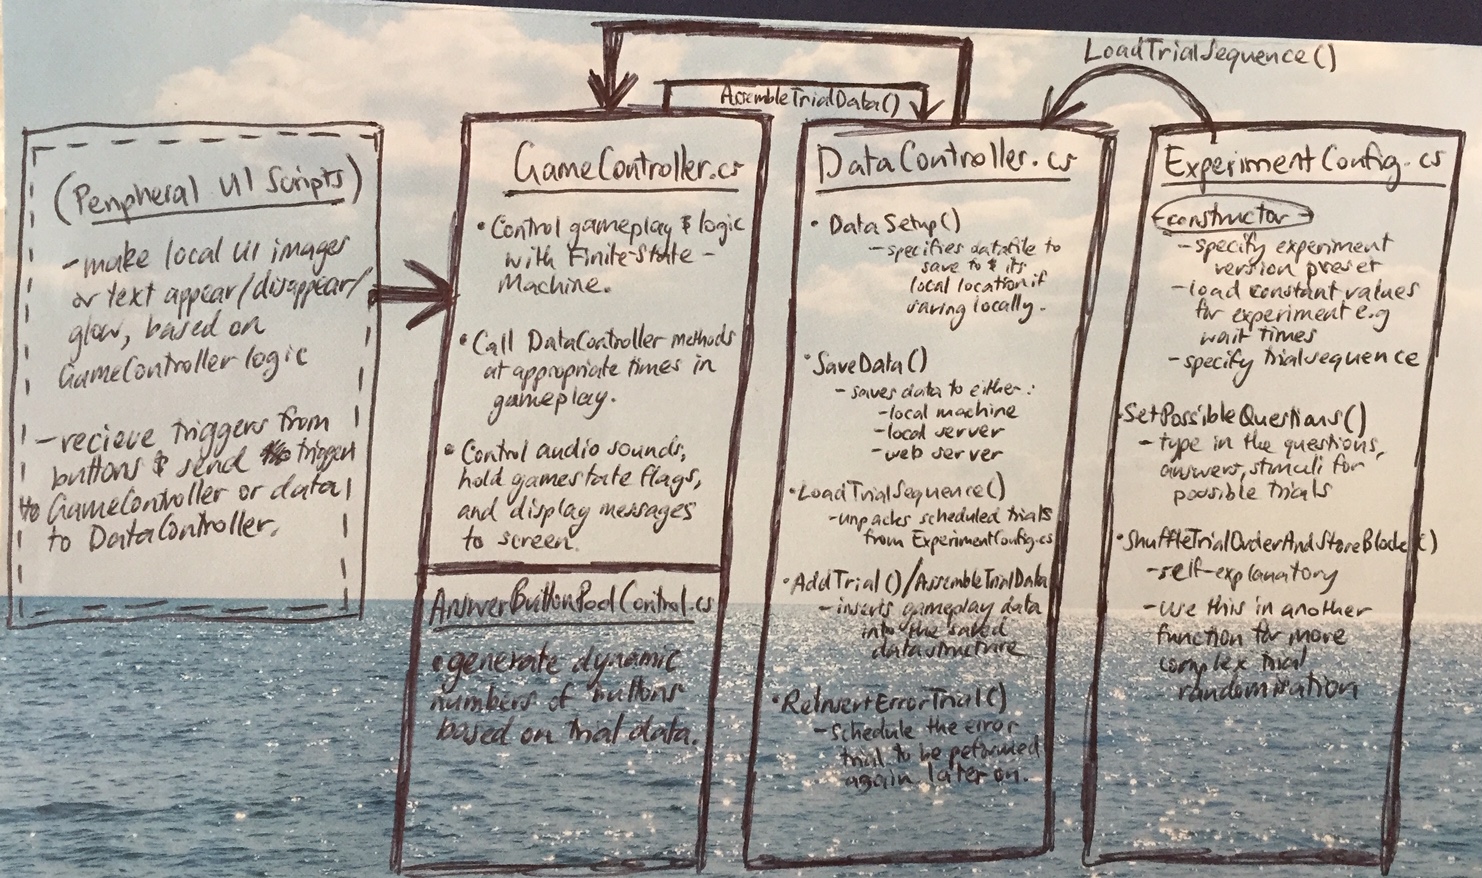 LoadTrialSequence()
AssembleTrialData()
(Peripheral UI Scripts)
- make local UI images
or text appear/disappear/
glow, based on
GameController logic
- recieve triggers from
buttons & send trigger
to GameController or data
to DataController.
GameController.cs
• Control gameplay & logic
with Finite-State-
Machine.
• Call DataController methods
at appropriate times in
gameplay.
• Control audio sounds,
hold gamestate flags,
and display messages
to screen.
AnswerButtonPoolControl.cs
• generate dynamic
numbers of buttons
based on trial data.
DataController.cs
• DataSetup()
- specifies datafile to
save to & its
local location if
saving locally.
• SaveData()
- saves data to either:
- local machine
- local server
- web server
• LoadTrialSequence()
- unpacks scheduled trials
from ExperimentConfig.cs
• AddTrial()/AssembleTrialData
- inserts gameplay data
into the saved
datastructure
• ReInsertErrorTrial()
- schedule the error
trial to be peformed
again later on.
ExperimentConfig.cs
- constructor -
- specify experiment
version preset
- load constant values
for experiment e.g
wait times
- specify trialsequence
• SetPossibleQuestions()
- type in the questions,
answers, stimuli for
possible trials
• ShuffleTrialOrderAndStoreBlocks()
- self-explanatory
- use this in another
function for more
complex trial
randomisation